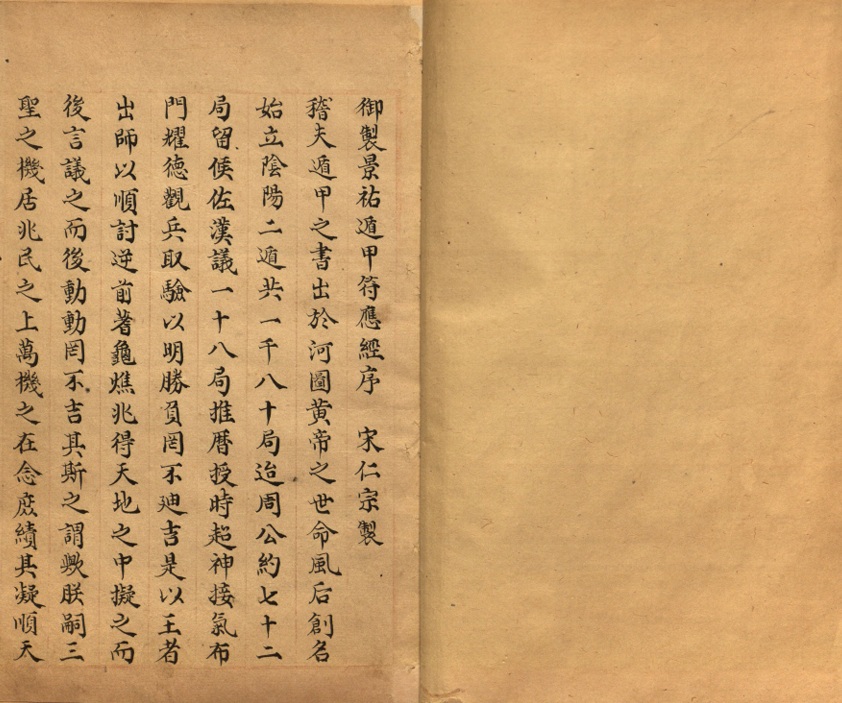 御製景祐遁甲符應經序　宋仁宗製
稽夫遁甲之書出於河圖黄帝之世命風后創名
始立陰陽二遁共一千八十局迨周公約七十二
局留侯佐漢議一十八局推曆授時超神接氣布
門耀德觀兵取驗以明勝負罔不廸吉是以王者
出師以順討逆前著龜燋兆得天地之中擬之而
後言議之而後動動罔不吉其斯之謂歟朕嗣三
聖之機居兆民之上萬機之在念庶績其凝順天